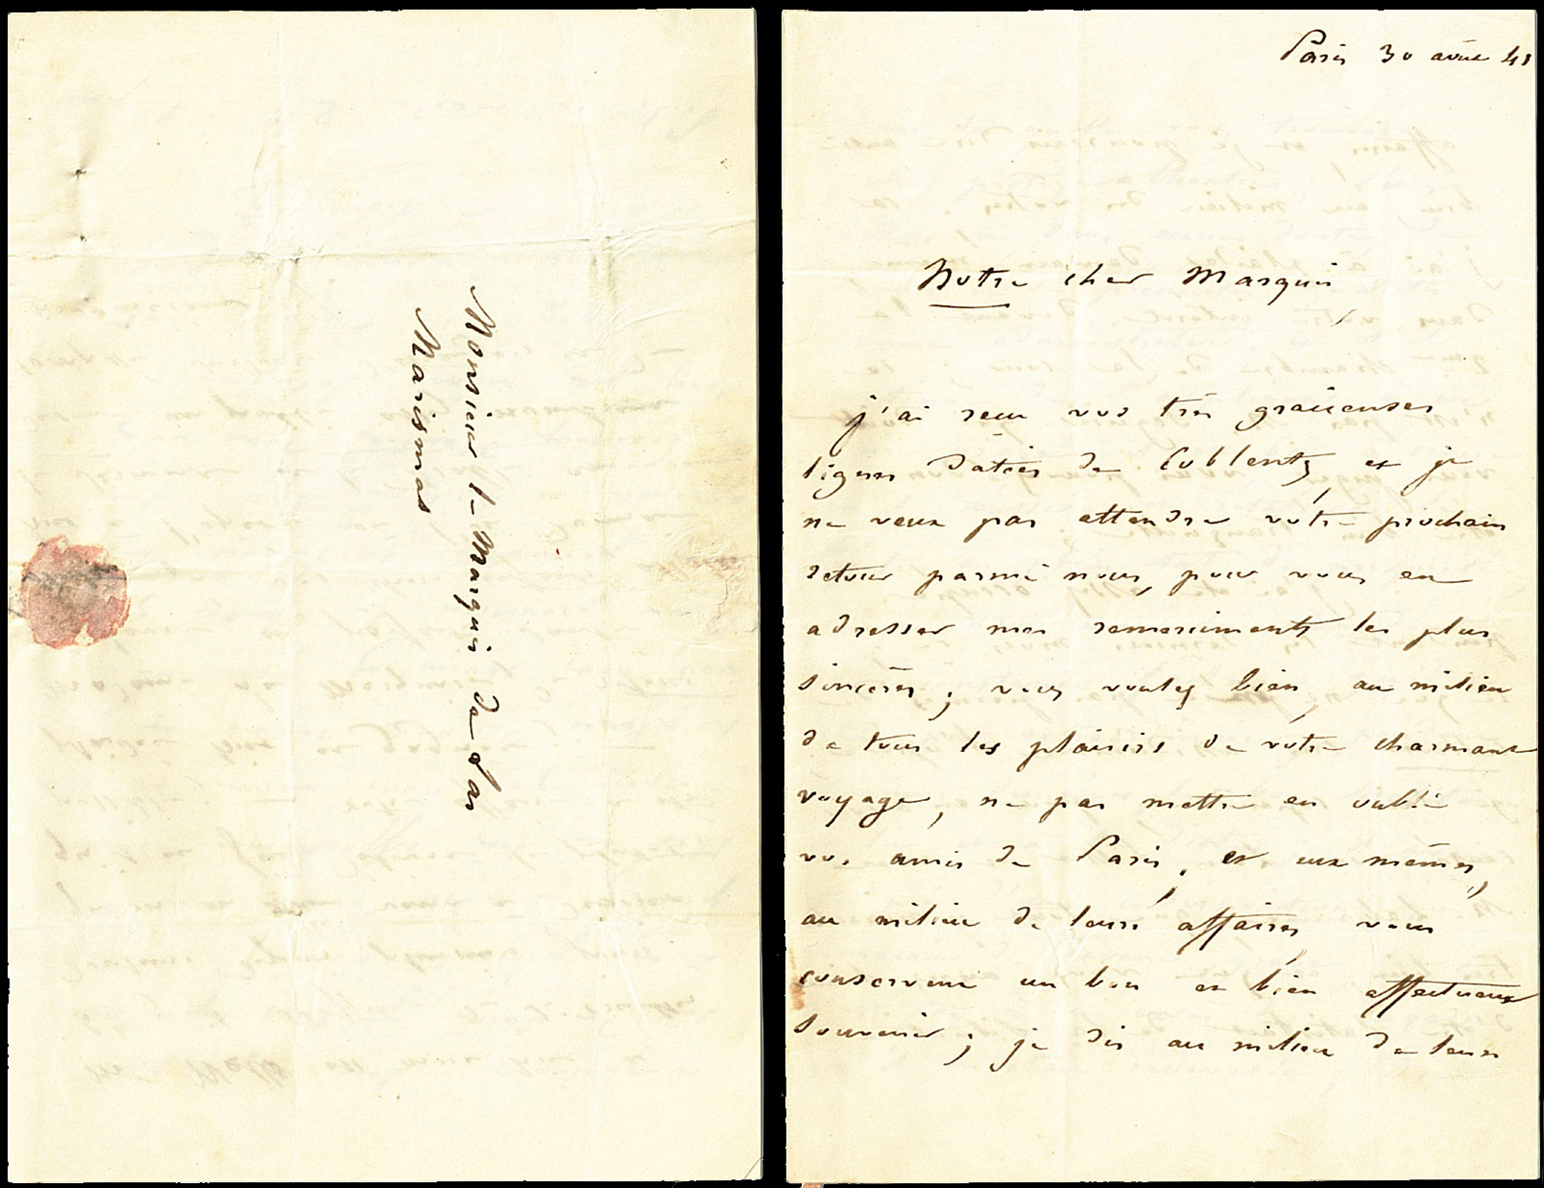 Monsieur le Marquis de Las
Marismas
Paris 30 avril 41
Notre cher Marquis,
j'ai reçu vos très gracieuses
lignes datées de Coblentz, et je
ne veux pas attendre vôtre prochain
retour parmi nous, pour vous en
adresser mes remerciments les plus
sincères ; vous voulez bien, au milieu
de tous les plaisirs de vôtre charmant
voyage, ne pas mettre en oubli
vos amis de Paris, et eux mêmes,
au milieu de leurs affaires, vous
conservent un bon et bien affectueux
souvenir ; je dis au milieu de leurs